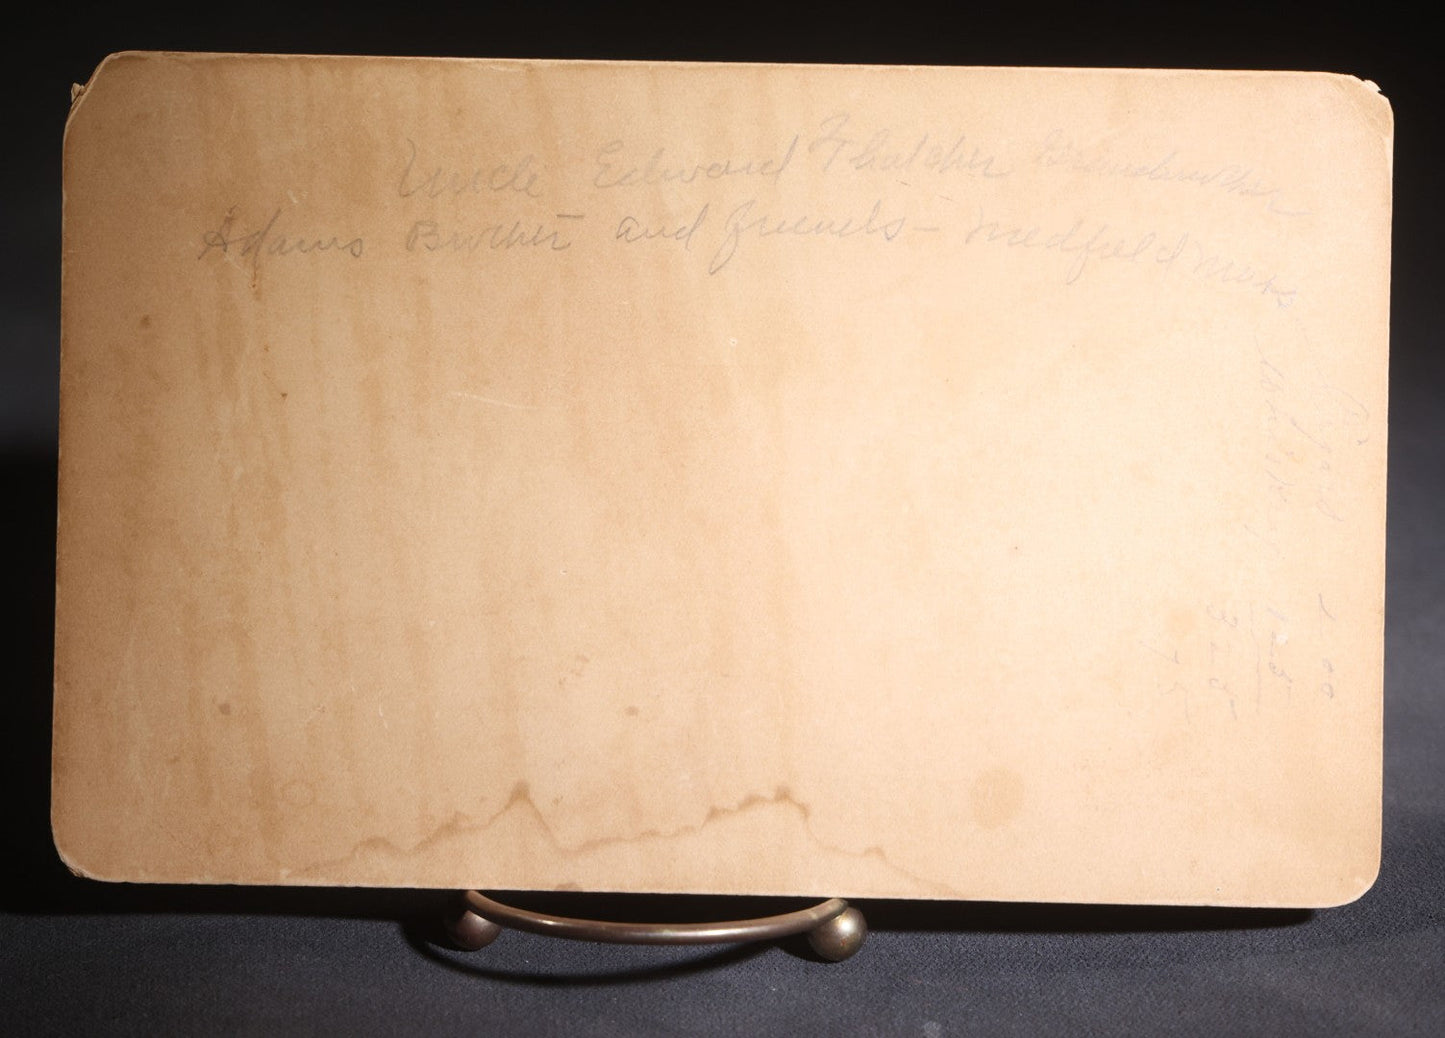 Uncle Edward Thatcher Grandmother
Adams Brother and friends – Medfield Mass
2 00
1 25
3 25
7 5